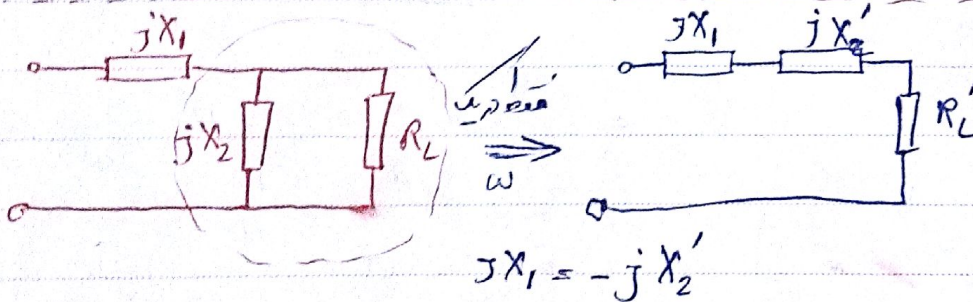 jX₁ jX₂ R_L
ω
⇒
jX₁ jX₂' R_L'
jX₁ = -jX₂'